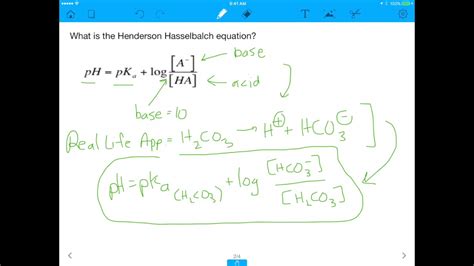 9:41 AM
100%
What is the Henderson Hasselbalch equation?
pH = pKa + log [A⁻] / [HA]
base
acid
base = 10
Real Life App = H₂CO₃ → H⁺ + HCO₃⁻
pH = pKa (H₂CO₃) + log [HCO₃⁻] / [H₂CO₃]
2/4